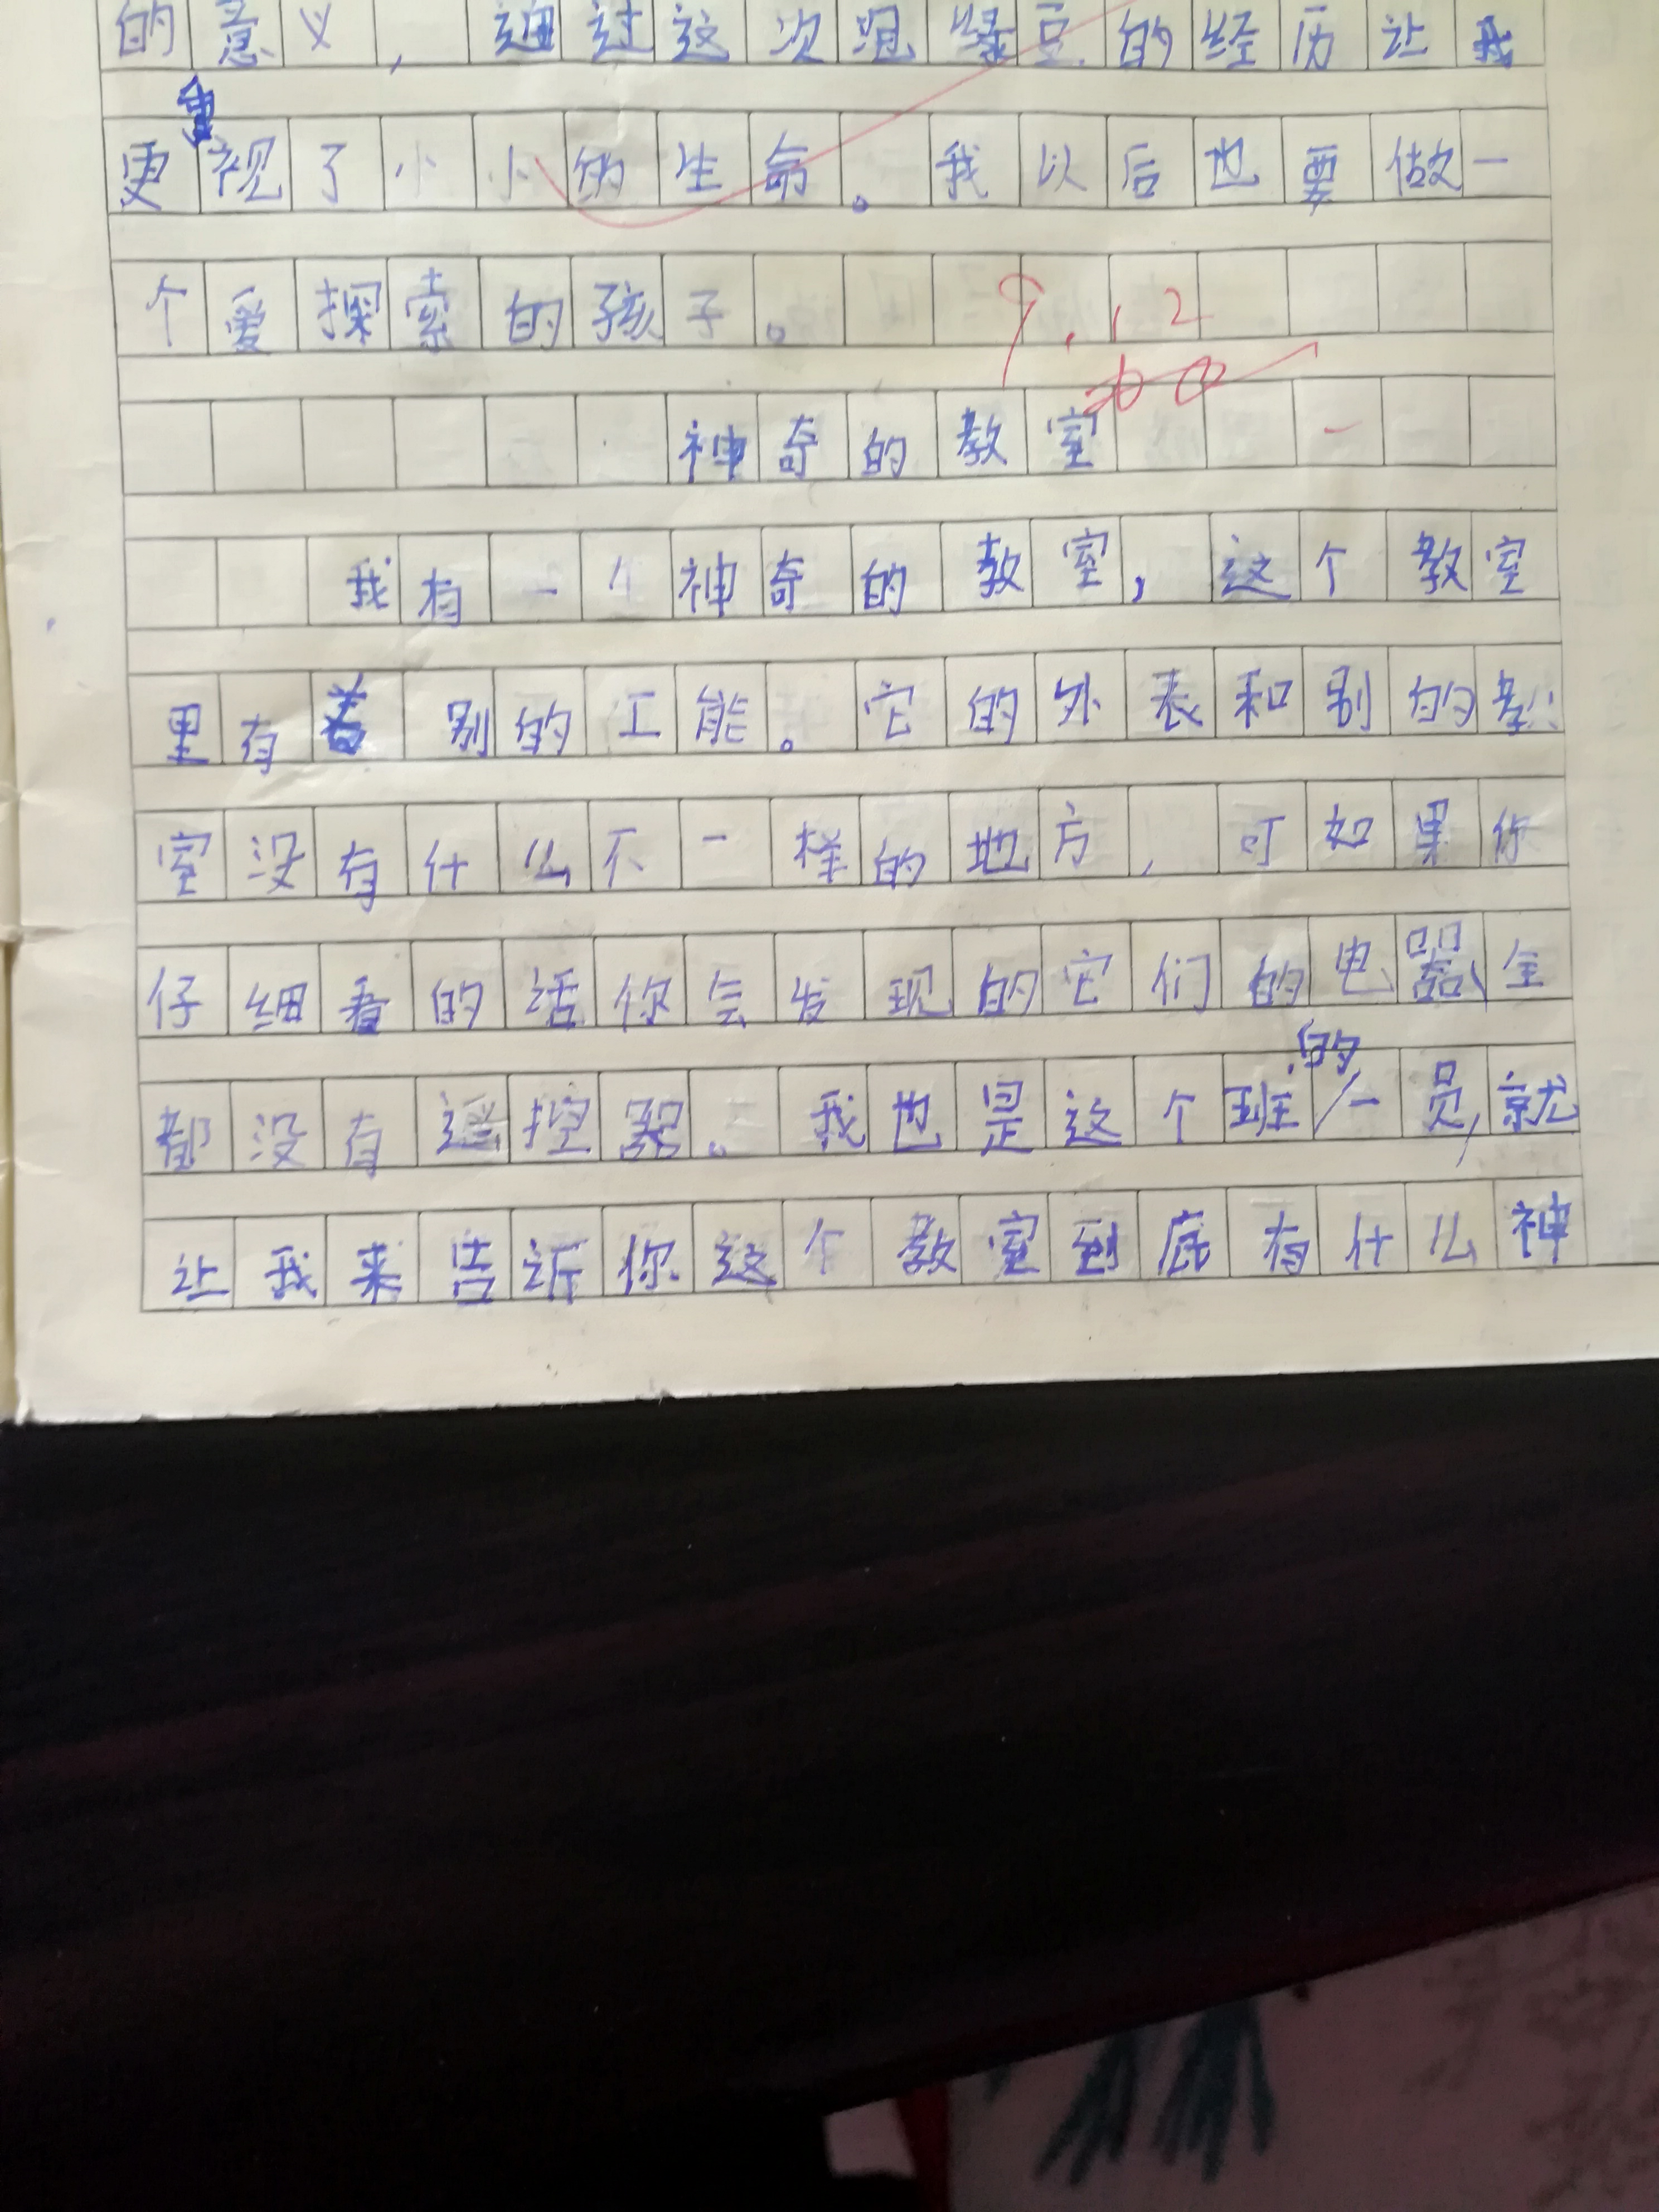 的意义，通过这次泡绿豆的经历让我
更重视了小小的生命。我以后也要做一
个爱探索的孩子。
9.12
神奇的教室
我有一个神奇的教室，这个教室
里有着别的工能。它的外表和别的教
室没有什么不一样的地方，可如果你
仔细看的话你会发现的它们的电器全
都没有遥控器。我也是这个班的一员，就
让我来告诉你这个教室到底有什么神